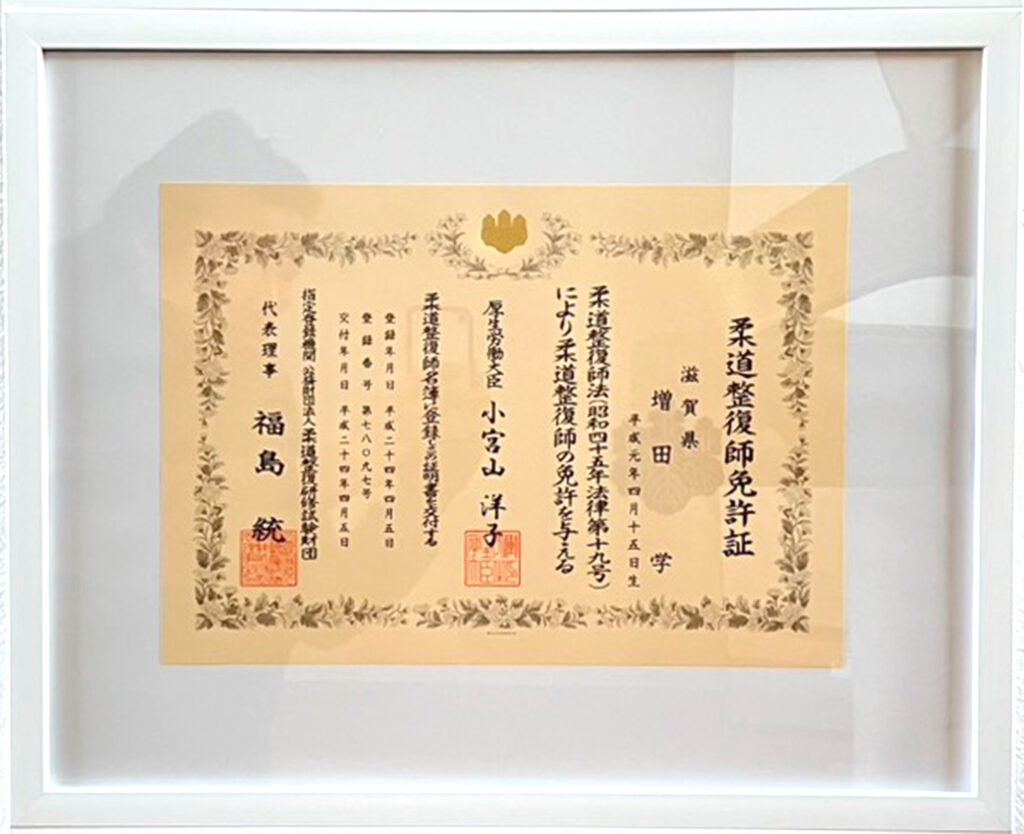 柔道整復師免許証
滋賀県
増田 学
平成元年四月十五日生
柔道整復師法(昭和四十五年法律第十九号)
により柔道整復師の免許を与える
厚生労働大臣 小宮山 洋子
柔道整復師名簿に登録しこの証明書を交付する
登録年月日 平成二十四年四月五日
登録番号 第七八〇九七号
交付年月日 平成二十四年四月五日
指定登録機関 公益財団法人 柔道整復研修試験財団
代表理事 福島 統